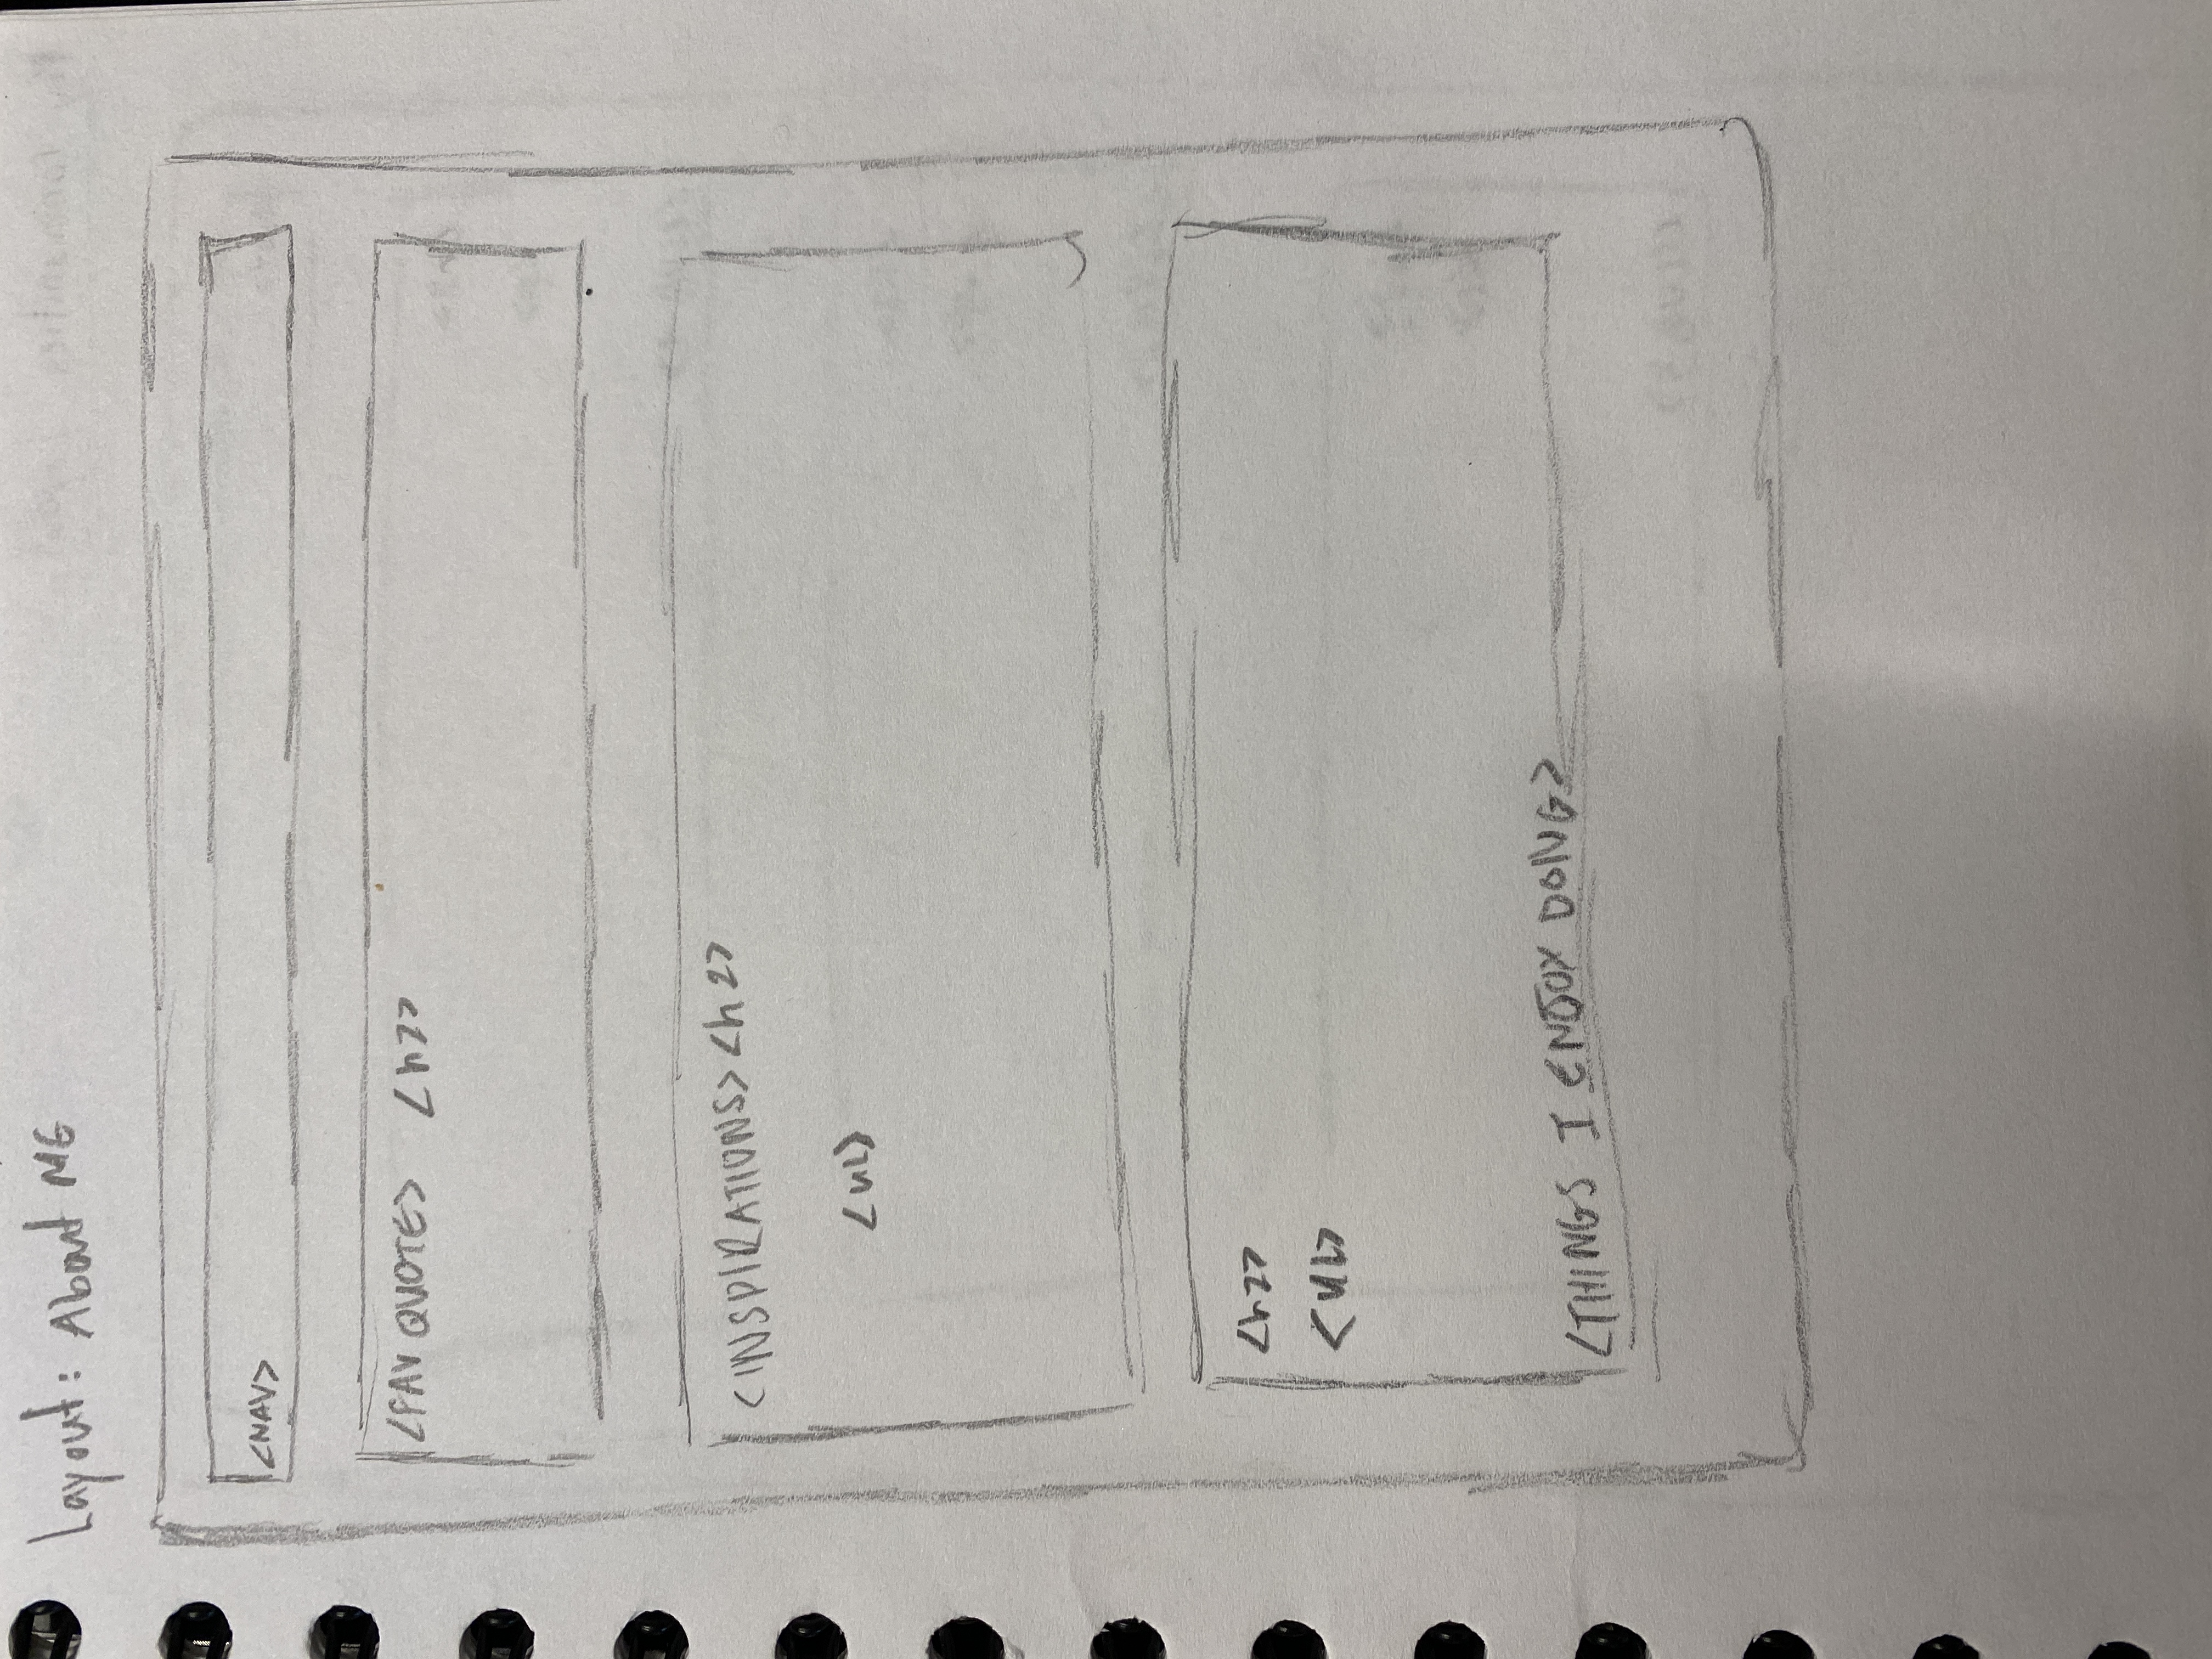 Layout: About ME
<NAV>
<FAV QUOTE> <h2>
<INSPIRATIONS> <h2>
<UL>
<h2>
<UL>
<THINGS I ENJOY DOING>